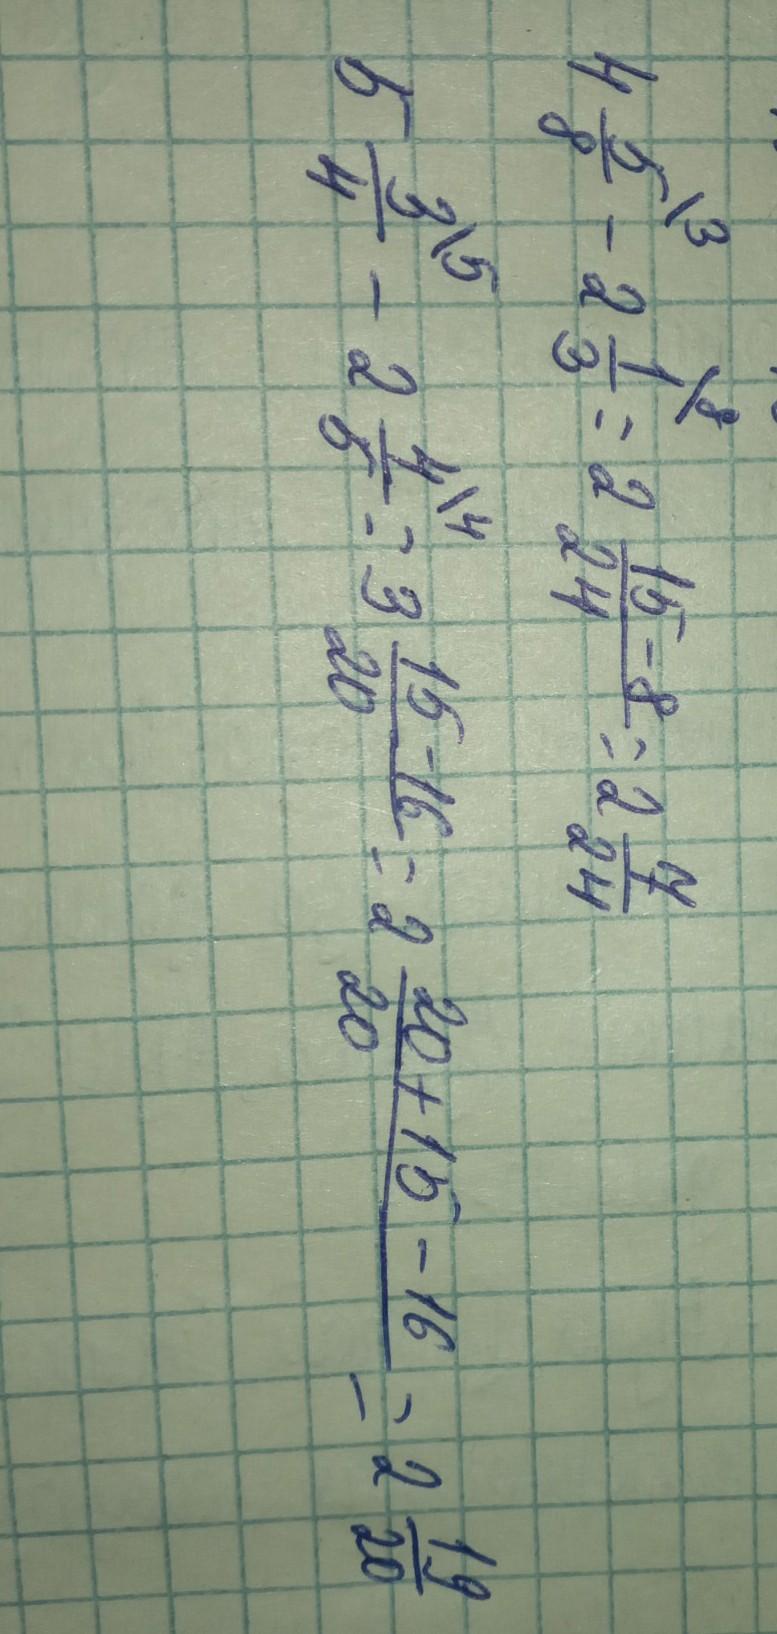 4 5/8 \3 - 2 1/3 \8 = 2 15-8/24 = 2 7/24
5 3/4 \5 - 2 4/5 \4 = 3 15-16/20 = 2 20+15-16/20 = 2 19/20